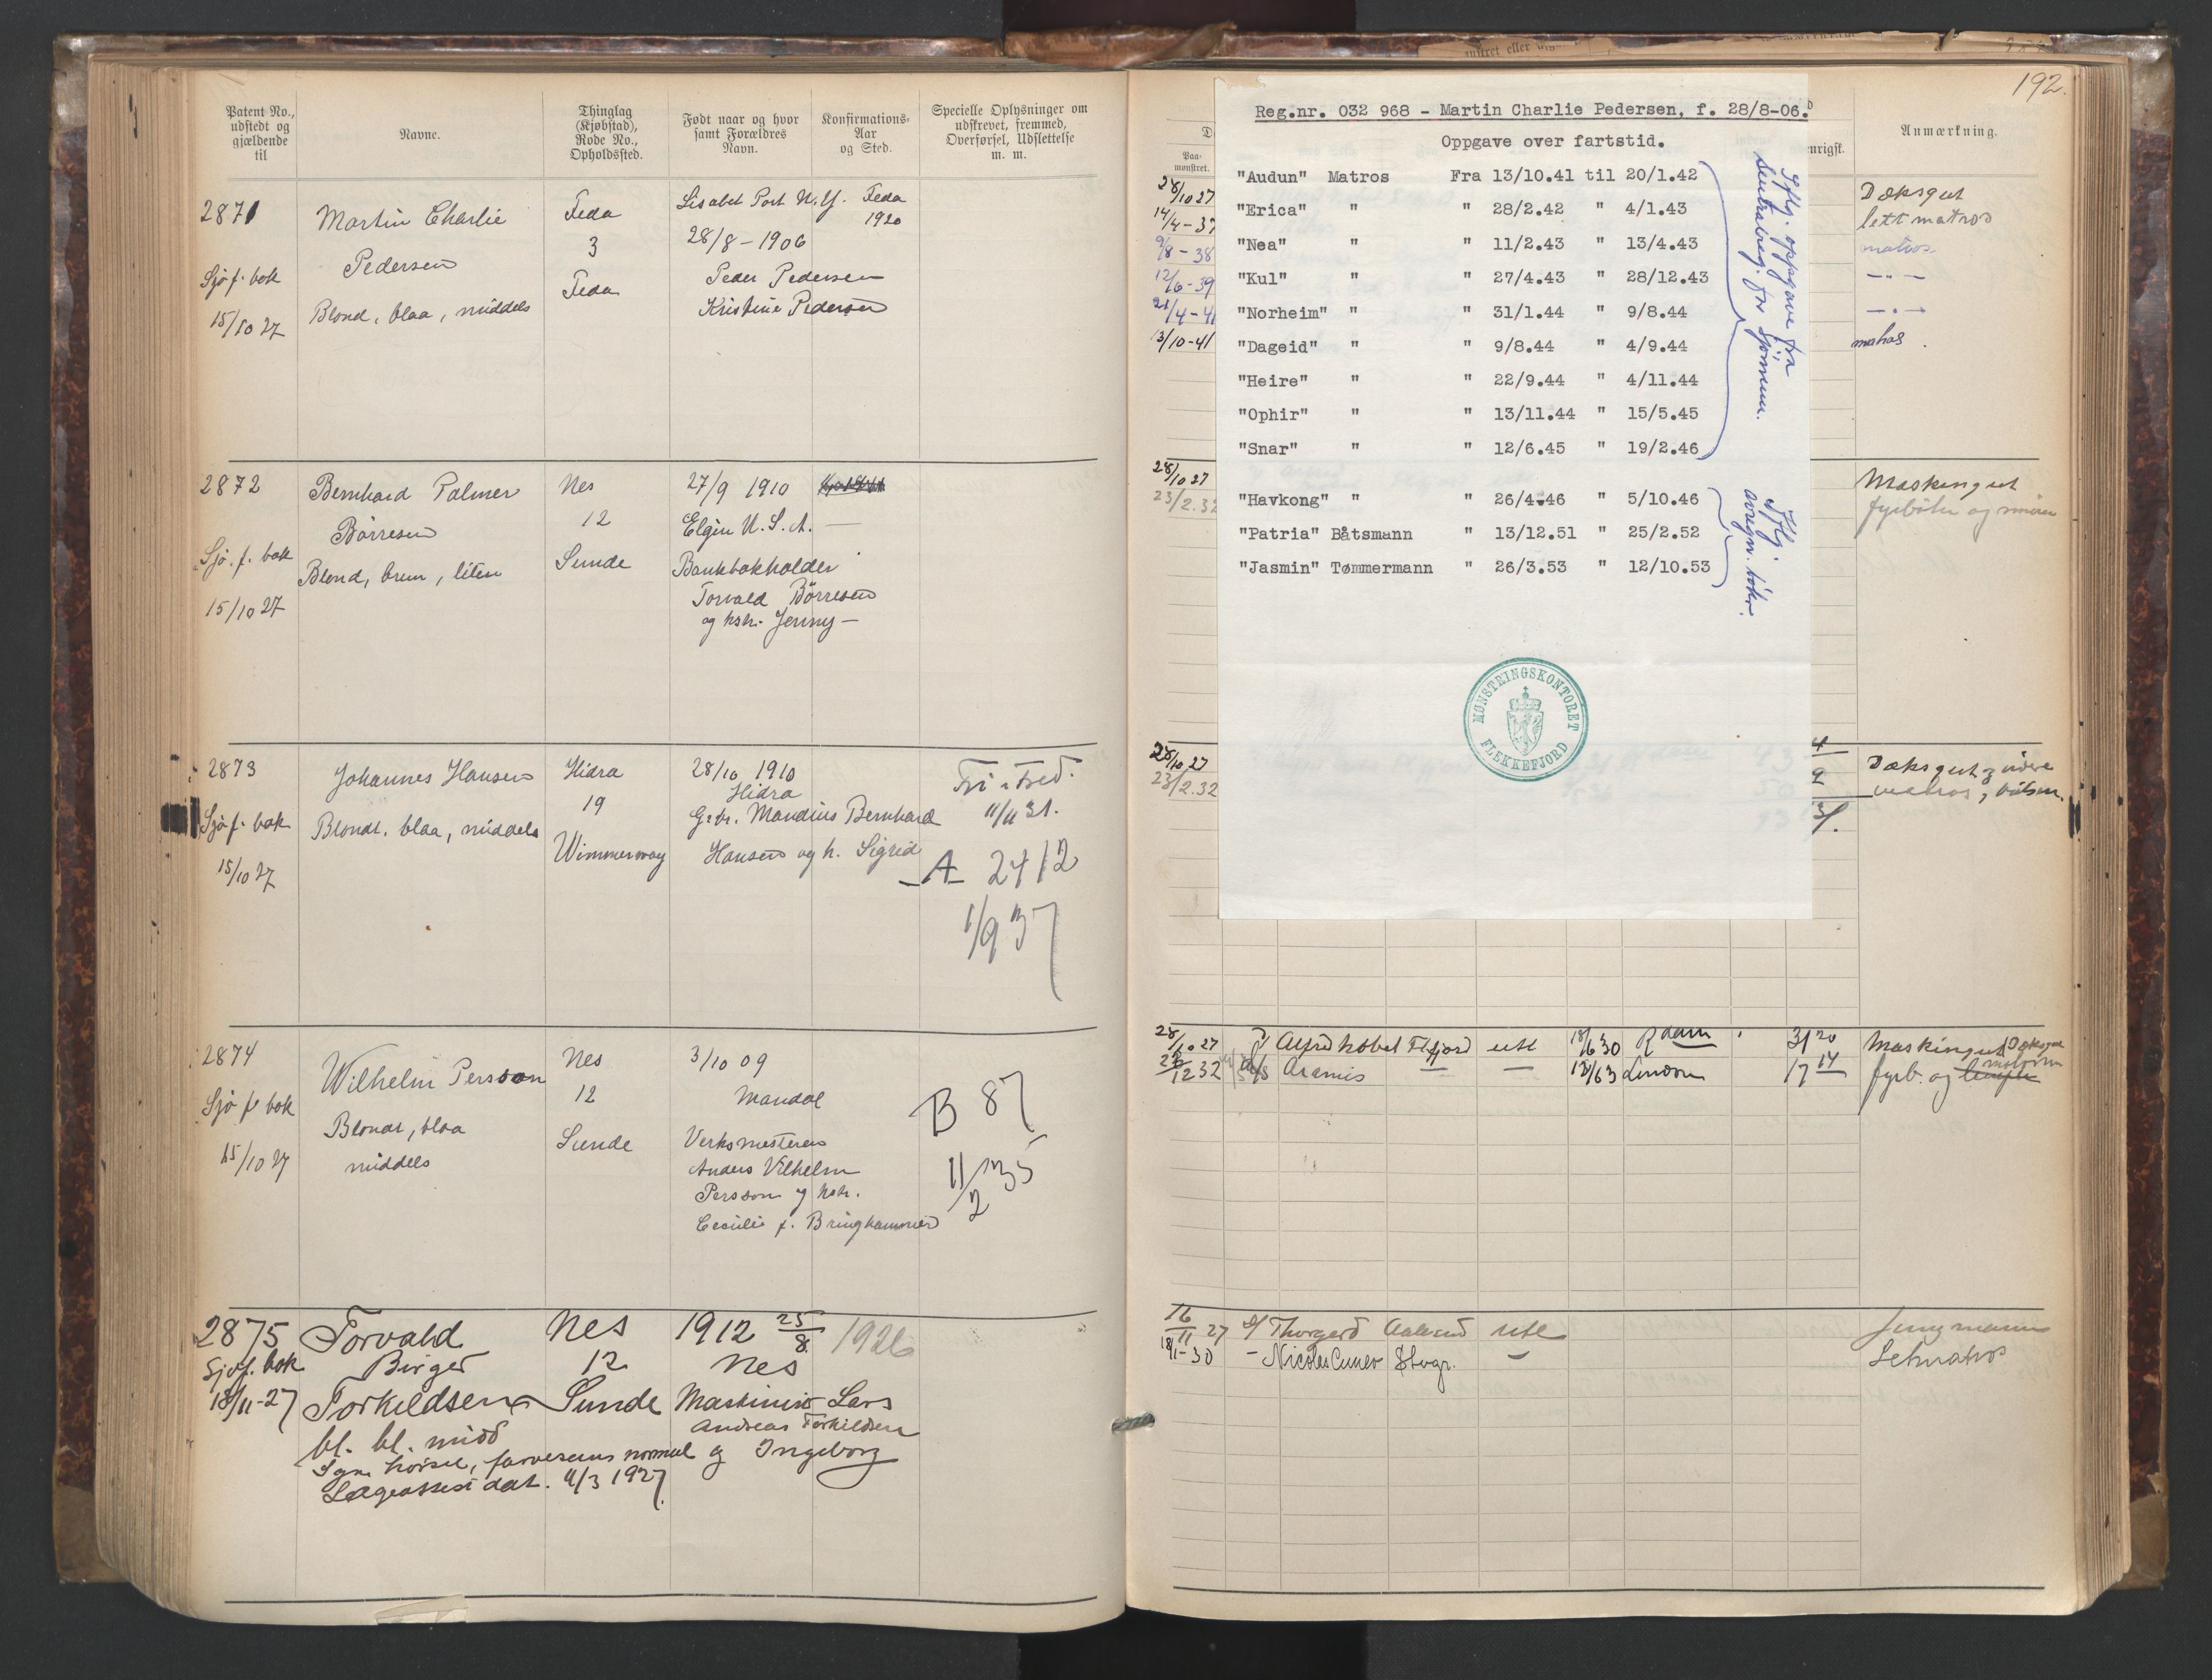 Patent No., udstedt og gjældende til
Navne.
Thinglag (Kjøbstad), Rode No., Opholdssted.
Født naar og hvor samt Forældres Navn.
Konfirmations-Aar og Sted.
Specielle Oplysninger om udskrevet, fremmed, Overførsel, Udslettelse m. m.
2871
Sjøf. bok
15/10 27
Martin Charlie
Pedersen
Blond, blaa, middels
Feda
3
Feda
Lisabet Port N.Y.
28/8-1906
Peder Pedersen
Kristine Pedersen
Feda
1920
2872
Sjø. f. bok
15/10 27
Bernhard Palmer
Börresen
Blond, brun, liten
Nes
12
Sunde
27/9 1910
Elgin U.S.A. —
Bankbokholder
Torvald Börresen
og hstr. Jenny —
2873
Sjøf. bok
15/10 27
Johannes Hansen
Blondt, blaa, middels
Hidra
19
28/10 1910
Hidra
Gbr. Mandius Bernhard
Hansen og h. Sigrid
11/11 31.
A 2412
1/9 37
2874
Sjø f. bok
15/10 27
Wilhelm Persson
Blondt, blaa
middels
Nes
12
Sunde
3/10 09
Mandal
Verksmesteren
Anders Vilhelm
Persson og hstr.
Cecilie f. Bringhammer
B 87
11/2 35
2875
Sjøf. bok
18/11-27
Torvald
Birger
Torkildsen
bl. bl. midd
Syn hørsel, farvesans normal
Lægeattest dat. 4/3 1927.
Nes
12
Sunde
1912 25/8
Nes
Maskinist Lars
Andreas Torkildsen
og Ingeborg
1926
192.
Paa-mønstret.
Anmærkning.
28/10 27
14/4-37
9/8-38
12/6-39
21/4-41
13/10-41
Dæksgut
lettmatros
matros
— " —
— " —
matros
Reg.nr. 032 968 - Martin Charlie Pedersen, f. 28/8-06.
Oppgave over fartstid.
"Audun" Matros Fra 13/10.41 til 20/1.42
"Erica" " " 28/2.42 " 4/1.43
"Nea" " " 11/2.43 " 13/4.43
"Kul" " " 27/4.43 " 28/12.43
"Norheim" " " 31/1.44 " 9/8.44
"Dageid" " " 9/8.44 " 4/9.44
"Heire" " " 22/9.44 " 4/11.44
"Ophir" " " 13/11.44 " 15/5.45
"Snar" " " 12/6.45 " 19/2.46
"Havkong" " " 26/4.46 " 5/10.46
"Patria" Båtsmann " 13/12.51 " 25/2.52
"Jasmin" Tømmermann " 26/3.53 " 12/10.53
Iflg. oppgave fra
Sentralreg. for sjømenn.
Iflg.
avregn. bøker.
MØNSTRINGSKONTORET
FLEKKEFJORD
28/10 27
23/2.32
Maskingut
fyrbøter og smører
28/10 27
23/2.32
Dæksgut
matros, båtsm.
28/10 27
Alfred Nobel Flfjord utl 18/6 30 Rdam 31 20
Aramis — — London 17 14
Maskingut
fyrb. og
16/11 27 Thorgerd Aalesund utl
18/1-30 — Nicolas Cuneo Stvgr. —
Jungmann
Letmatros